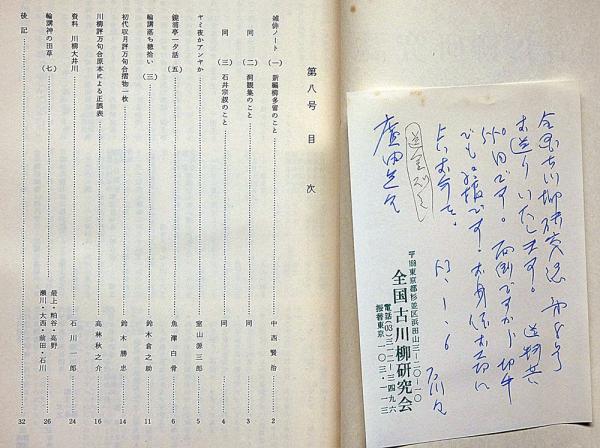 第八号　目　次
雑俳ノート（一）　新編柳多留のこと……中西賢治　2
同　（二）　洞観集のこと……同　3
同　（三）　石井宗叔のこと……同　4
ヤミ夜かアンヤか……室山源三郎　5
鏡酒亭一夕話　（五）……魚澤白骨　6
輪講落ち穂拾い　（三）……鈴木倉之助　11
初代収月評万句合摺物一枚……鈴木勝忠　14
川柳評万句合原本による正誤表……高林秋之介　16
資料　川柳大井川……石川一郎　24
輪講神の田草　（七）……最上・粕谷・高野
瀬川・大西・前田・石川　26
後記……32
全国古川柳研究会　第8号
お送りいたします。送料共
550円です。面倒ですが切手
でも結構です。
53.1.6　石川
〒168東京都杉並区浜田山三-二〇-一〇
全国古川柳研究会
電話(03)三一二-三四九六
振替東京一〇三・一一三